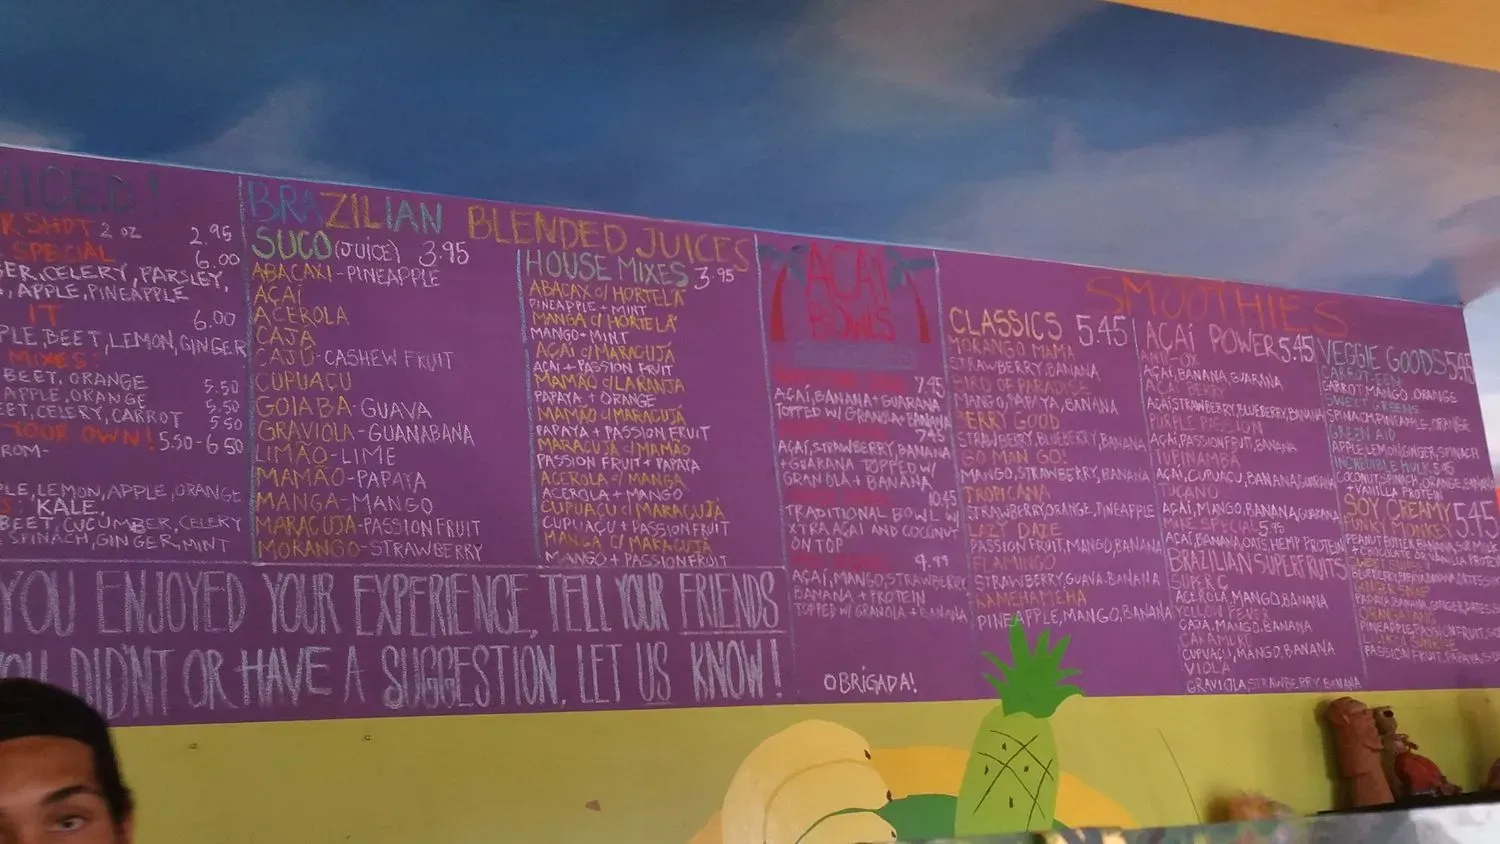 UICED!
R SHOT 2 OZ 2.95
SPECIAL 6.00
GER, CELERY, PARSLEY,
, APPLE, PINEAPPLE
IT 6.00
PLE, BEET, LEMON, GINGER
MIXES:
BEET, ORANGE 5.50
APPLE, ORANGE 5.50
EET, CELERY, CARROT 5.50
YOUR OWN! 5.50-6.50
ROM-
PLE, LEMON, APPLE, ORANGE
S: KALE,
BEET, CUCUMBER, CELERY
SPINACH, GINGER, MINT
BRAZILIAN BLENDED JUICES
SUCO (JUICE) 3.95
ABACAXI-PINEAPPLE
AÇAÍ
ACEROLA
CAJÁ
CAJÚ-CASHEW FRUIT
CUPUAÇU
GOIABA-GUAVA
GRAVIOLA-GUANABANA
LIMÃO-LIME
MAMÃO-PAPAYA
MANGA-MANGO
MARACUJA-PASSION FRUIT
MORANGO-STRAWBERRY
HOUSE MIXES 3.95
ABACAX C/ HORTELÃ
PINEAPPLE + MINT
MANGA C/ HORTELÃ
MANGO+MINT
AÇAI C/ MARACUJA
AÇAI + PASSION FRUIT
MAMÃO C/ LARANJA
PAPAYA + ORANGE
MAMÃO C/ MARACUJÁ
PAPAYA + PASSION FRUIT
MARACUJA C/ MAMÃO
PASSION FRUIT + PAPAYA
ACEROLA C/ MANGA
ACEROLA + MANGO
CUPUAÇU C/ MARACUJÁ
CUPUAÇU + PASSION FRUIT
MANGA C/ MARACUJA
MANGO + PASSION FRUIT
YOU ENJOYED YOUR EXPERIENCE, TELL YOUR FRIENDS
YOU DIDN'T OR HAVE A SUGGESTION, LET US KNOW!
AÇAI
BOWLS
7.45
AÇAÍ, BANANA + GUARANA
TOPPED W/ GRANOLA + BANANA
7.45
AÇAÍ, STRAWBERRY, BANANA
+ GUARANA TOPPED W/
GRANOLA + BANANA
10.45
TRADITIONAL BOWL W/
XTRA AÇAI AND COCONUT
ON TOP
9.99
AÇAÍ, MANGO, STRAWBERRY
BANANA + PROTEIN
TOPPED W/ GRANOLA + BANANA
OBRIGADA!
SMOOTHIES
CLASSICS 5.45
MORANGO MAMA
STRAWBERRY, BANANA
BIRD OF PARADISE
MANGO, PAPAYA, BANANA
BERRY GOOD
STRAWBERRY, BLUEBERRY, BANANA
GO MAN GO!
MANGO, STRAWBERRY, BANANA
TROPICANA
STRAWBERRY, ORANGE, PINEAPPLE
LAZY DAZE
PASSION FRUIT, MANGO, BANANA
FLAMINGO
STRAWBERRY, GUAVA, BANANA
KAMEHAMEHA
PINEAPPLE, MANGO, BANANA
AÇAÍ POWER 5.45
AÇAI, BANANA, GUARANA
AÇAI BERRY
AÇAI, STRAWBERRY, BLUEBERRY, BANANA
PURPLE PASSION
AÇAI, PASSION FRUIT, BANANA
TUPINAMBA
AÇAI, CUPUAÇU, BANANA, GUARANA
TUCANO
AÇAI, MANGO, BANANA, GUARANA
MIKE SPECIAL 5.95
AÇAI, BANANA, OATS, HEMP PROTEIN
BRAZILIAN SUPERFRUITS
SUPER C
ACEROLA, MANGO, BANANA
YELLOW FEVER
CAJA, MANGO, BANANA
CUPUAÇU, MANGO, BANANA
VIOLA
GRAVIOLA, STRAWBERRY, BANANA
VEGGIE GOODS 5.45
CARROT MANGO, ORANGE
SWEET GREENS
SPINACH, PINEAPPLE, ORANGE
GREEN AID
APPLE, LEMON, GINGER, SPINACH
INCREDIBLE HULK 5.95
COCONUT, SPINACH, ORANGE, BANANA
+ VANILLA PROTEIN
SOY CREAMY 5.45
FUNKY MONKEY